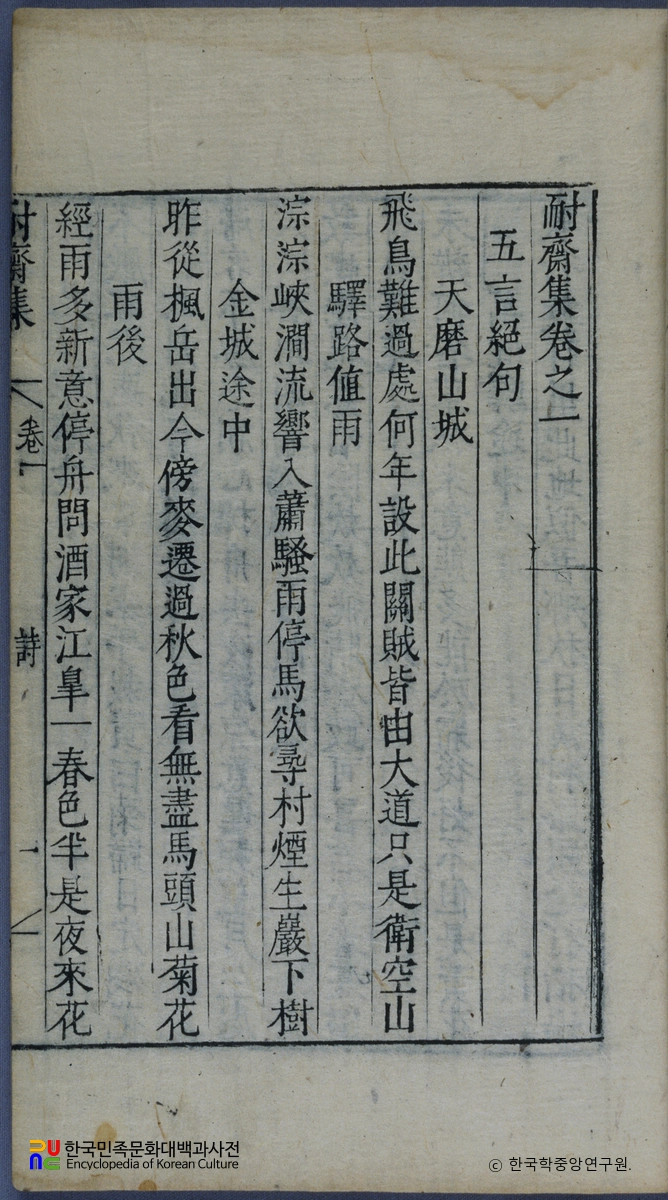 耐齋集卷之一
五言絕句
天磨山城
飛鳥難過處何年設此關賊皆由大道只是衛空山
驛路値雨
淙淙峽澗流響入蕭騷雨停馬欲尋村煙生巖下樹
金城途中
昨從楓岳出今傍麥遷過秋色看無盡馬頭山菊花
雨後
經雨多新意停舟問酒家江皐一春色半是夜來花
耐齋集
卷一
詩
一
한국민족문화대백과사전
Encyclopedia of Korean Culture
ⓒ 한국학중앙연구원.